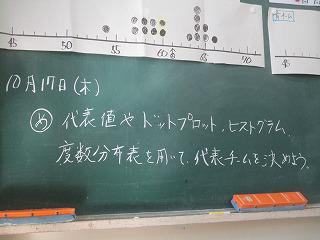 青チーム
45 50 55 60 65 70 45
10月17日(木)
め 代表値やドットプロット、ヒストグラム、
度数分布表を用いて、代表チームを決めよう。